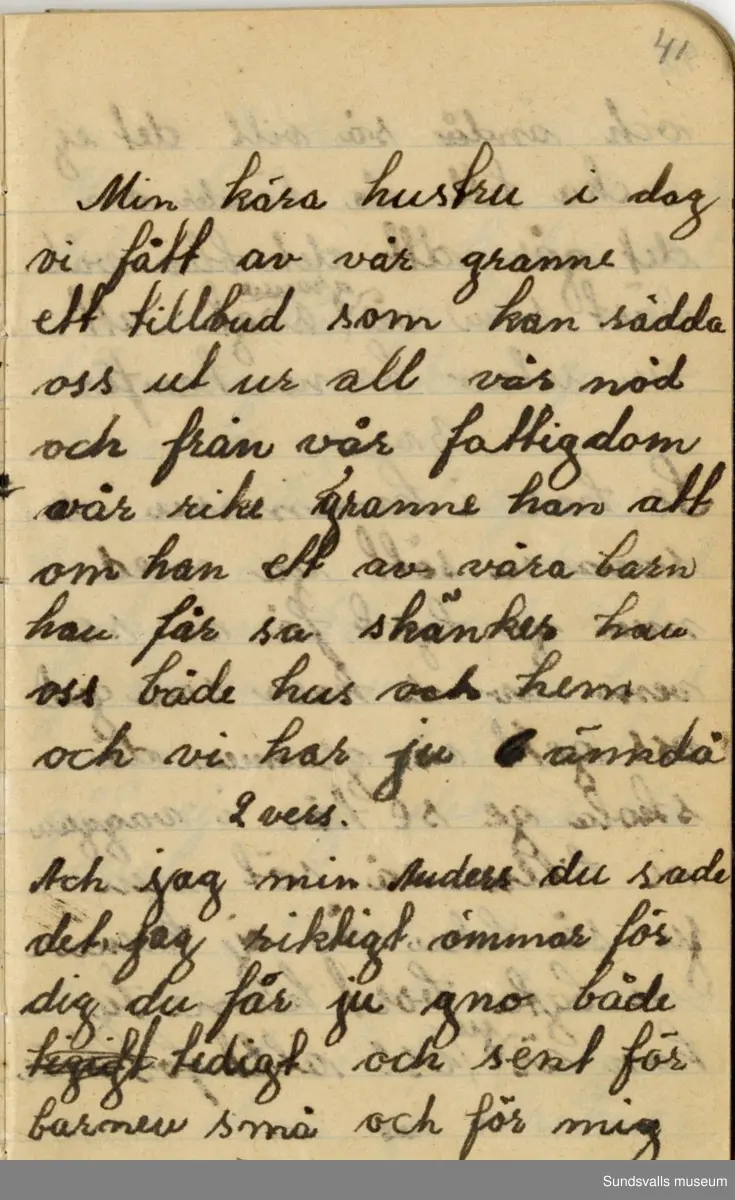 41
Min kära hustru i dag
vi fått av vår granne
ett tillbud som kan rädda
oss ut ur all vår nöd
och från vår fattigdom
vår rike granne han att
om han ett av våra barn
han får sa skänker han
oss både hus och hem
och vi har ju 6 änndå
2 vers.
Ach jag min Anders du sade
det jag riktigt ömmar för
dig du får ju gno både
tidigt och sent för
barnen små och för mig
Sundsvalls museum